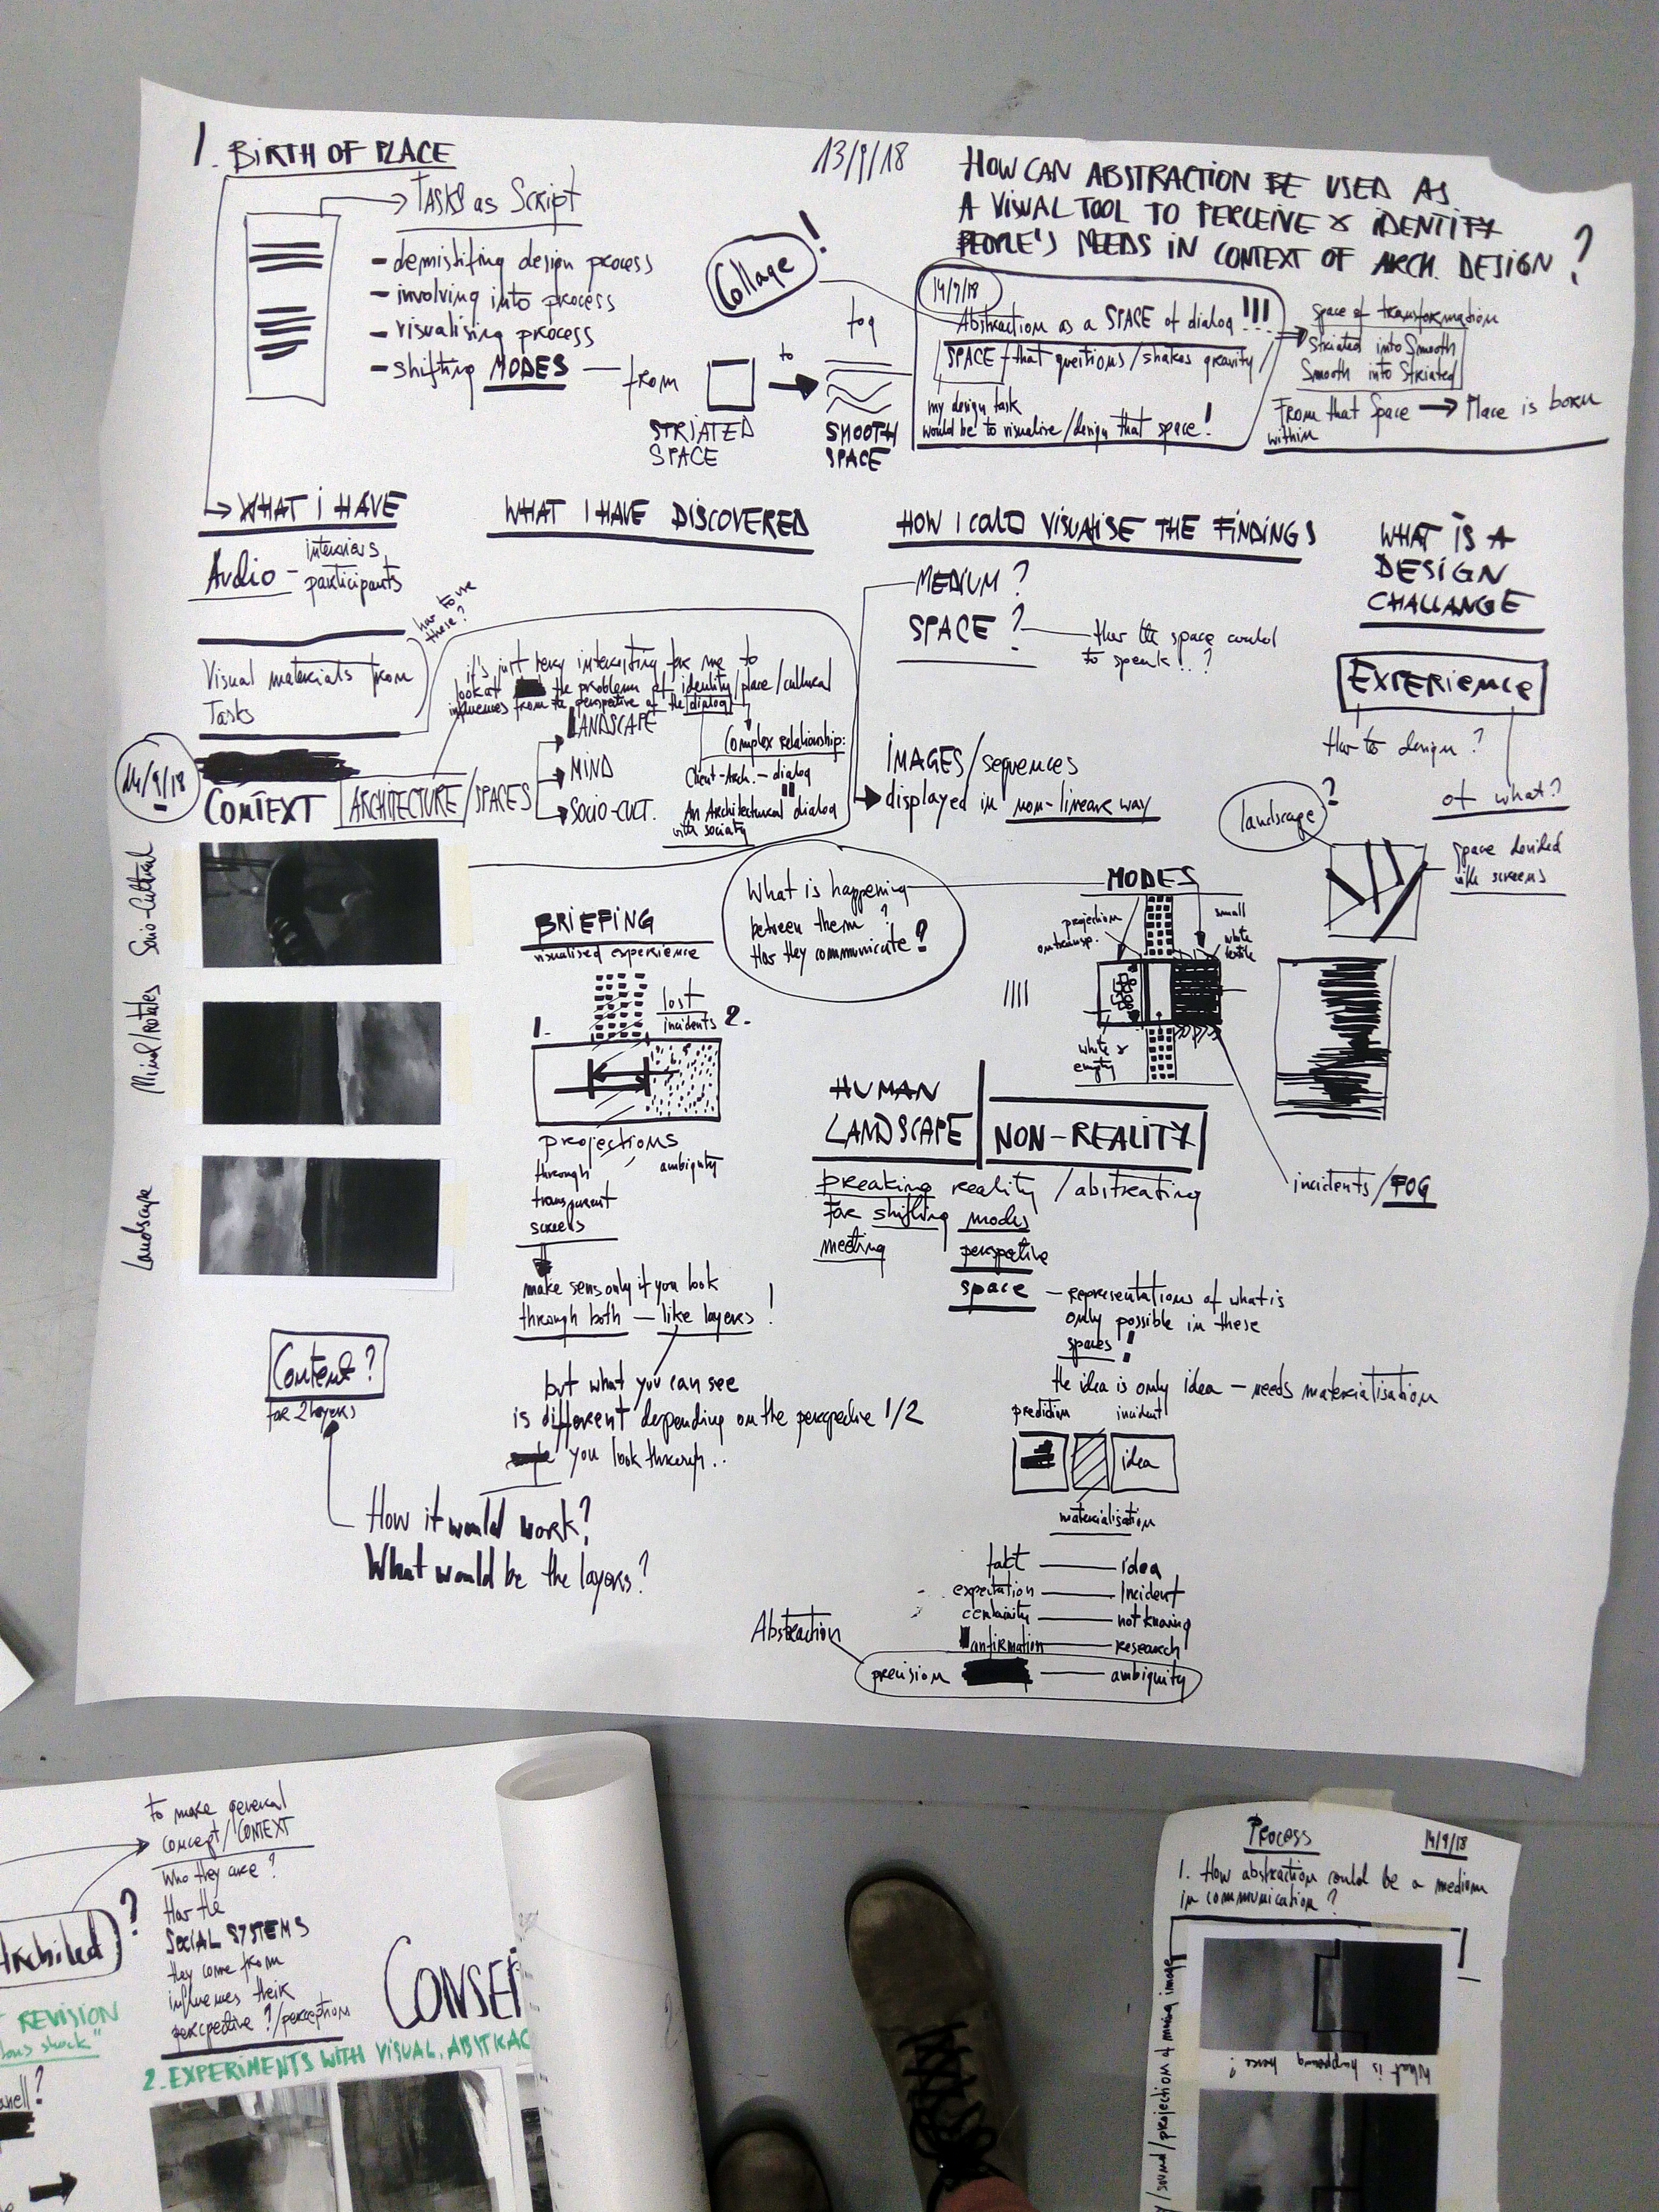 1. BIRTH OF PLACE
13/9/18
TASKS as Script
- demistifing design process
- involving into process
- visualising process
- shifting MODES — from
STRIATED
SPACE
to
fog
SMOOTH
SPACE
Collage !
HOW CAN ABSTRACTION BE USED AS
A VISUAL TOOL TO PERCEIVE & IDENTIFY
PEOPLE'S NEEDS IN CONTEXT OF ARCH. DESIGN ?
14/9/18
Abstraction as a SPACE of dialog !!!
SPACE that questions/shakes gravity/
my design task
would be to visualise/design that space!
space of transformation
Striated into Smooth
Smooth into Striated
From that Space → Place is born
within
WHAT I HAVE
Audio - interviews
participants
Visual materials from
Tasks
how to use
these?
14/9/18
CONTEXT ARCHITECTURE/SPACES
LANDSCAPE
MIND
SOCIO-CULT.
Socio-Cultural
Landscape
WHAT I HAVE DISCOVERED
it's just very interesting for me to
look at the problem of identity/place/cultural
influences from the perspective of the dialog
Complex relationship:
Client-Arch. - dialog
An Architectural dialog
with society
HOW I COULD VISUALISE THE FINDINGS
MEDIUM ?
SPACE ? — the space could
to speak..?
IMAGES/sequences
displayed in non-linear way
WHAT IS A
DESIGN
CHALLANGE
EXPERIENCE
How to design?
of what?
landscape ?
space devided
with screens
BRIEFING
visualised experience
1.
lost
incidents 2.
projections
through
transparent
screens
ambiguity
make sens only if you look
through both — like layers !
but what you can see
is different depending on the perspective 1/2
you look through..
What is happening
between them ?
How they communicate ?
MODES
projection
on transp.
small
white
textile
white &
empty
incidents/FOG
HUMAN
LANDSCAPE
NON-REALITY
breaking reality /abstracting
for shifting modes
meeting perspective
space — representations of what is
only possible in these
spaces !
the idea is only idea — needs materialisation
prediction incident
idea
materialisation
fakt — idea
expectation — Incident
certainity — not knowing
confirmation — research
precision — ambiguity
Abstraction
Content ?
for 2 layers
How it would work?
What would be the layers?
to make general
concept/CONTEXT
Who they are?
How the
SOCIAL SYSTEMS
they come from
influences their
perspective ?/perception
?
REVISION
2. EXPERIMENTS WITH VISUAL. ABSTRAC
Process 14/9/18
1. How abstraction could be a medium
in communication ?
What is happening here ?
/sound/projection of moving image